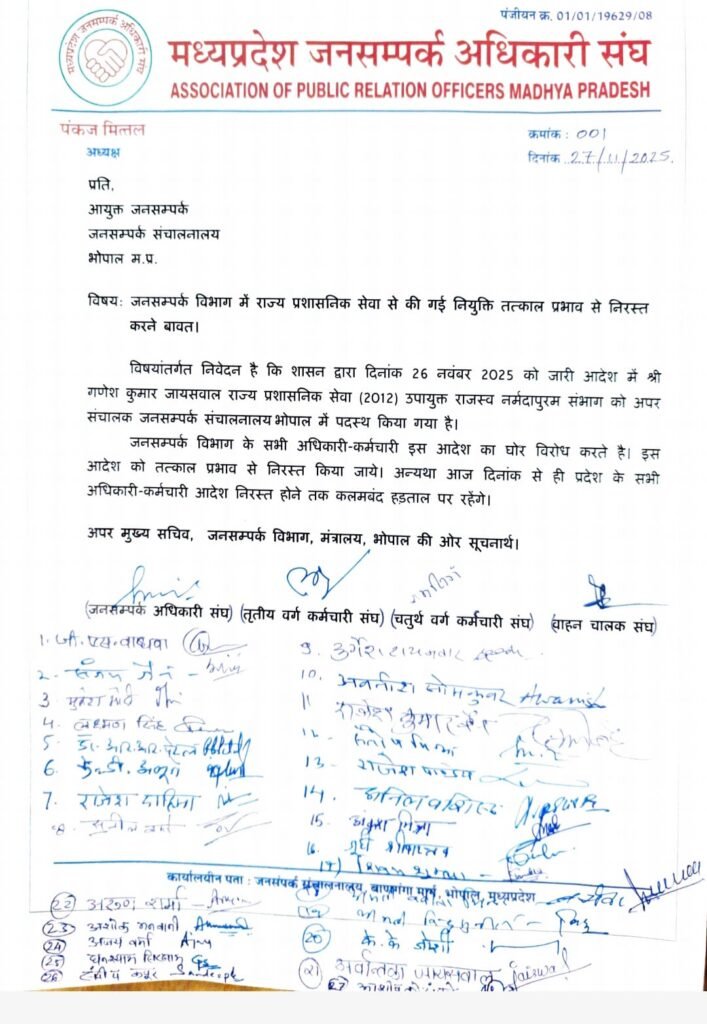 पंजीयन क्र. 01/01/19629/08
मध्यप्रदेश जनसम्पर्क अधिकारी संघ
मध्यप्रदेश जनसम्पर्क अधिकारी संघ
ASSOCIATION OF PUBLIC RELATION OFFICERS MADHYA PRADESH
पंकज मित्तल
अध्यक्ष
कमांक : 001
दिनांक 27/11/2025.
प्रति,
आयुक्त जनसम्पर्क
जनसम्पर्क संचालनालय
भोपाल म.प्र.
विषय: जनसम्पर्क विभाग में राज्य प्रशासनिक सेवा से की गई नियुक्ति तत्काल प्रभाव से निरस्त
करने बावत।
विषयांतर्गत निवेदन है कि शासन द्वारा दिनांक 26 नवंबर 2025 को जारी आदेश में श्री
गणेश कुमार जायसवाल राज्य प्रशासनिक सेवा (2012) उपायुक्त राजस्व नर्मदापुरम संभाग को अपर
संचालक जनसम्पर्क संचालनालय भोपाल में पदस्थ किया गया है।
जनसम्पर्क विभाग के सभी अधिकारी-कर्मचारी इस आदेश का घोर विरोध करते है। इस
आदेश को तत्काल प्रभाव से निरस्त किया जाये। अन्यथा आज दिनांक से ही प्रदेश के सभी
अधिकारी-कर्मचारी आदेश निरस्त होने तक कलमबंद हडताल पर रहेंगे।
अपर मुख्य सचिव, जनसम्पर्क विभाग, मंत्रालय, भोपाल की ओर सूचनार्थ।
(जनसम्पर्क अधिकारी संघ) (तृतीय वर्ग कर्मचारी संघ) (चतुर्थ वर्ग कर्मचारी संघ) (वाहन चालक संघ)
1. जी. एस. वाधवा
2. संजय जैन
3. मुकेश मोदी
4. लक्ष्मण सिंह
5. डॉ. आर.आर. पटेल
6.
7. राजेश दाहिमा
8. सुनील वर्मा
9.
10. अवनीश सोमकुवर Awanish
11. राजेश
12. संतोष मिश्रा
13. राजेश पाण्डेय
14. अनिल वशिष्ठ
15. मिश्रा
16. श्रीवास्तव
17)
कार्यालयीन पता : जनसंपर्क संचालनालय, बाणगंगा मार्ग, भोपाल, मध्यप्रदेश
19
20 के. के. जोशी
21 अवन्तिका जायसवाल Jaiswal
22 अरुण शर्मा
23 अशोक मनवानी
24 अजय वर्मा Ajay
25 घनश्याम सिरसाम
26 संदीप कपूर Sandeepk
27